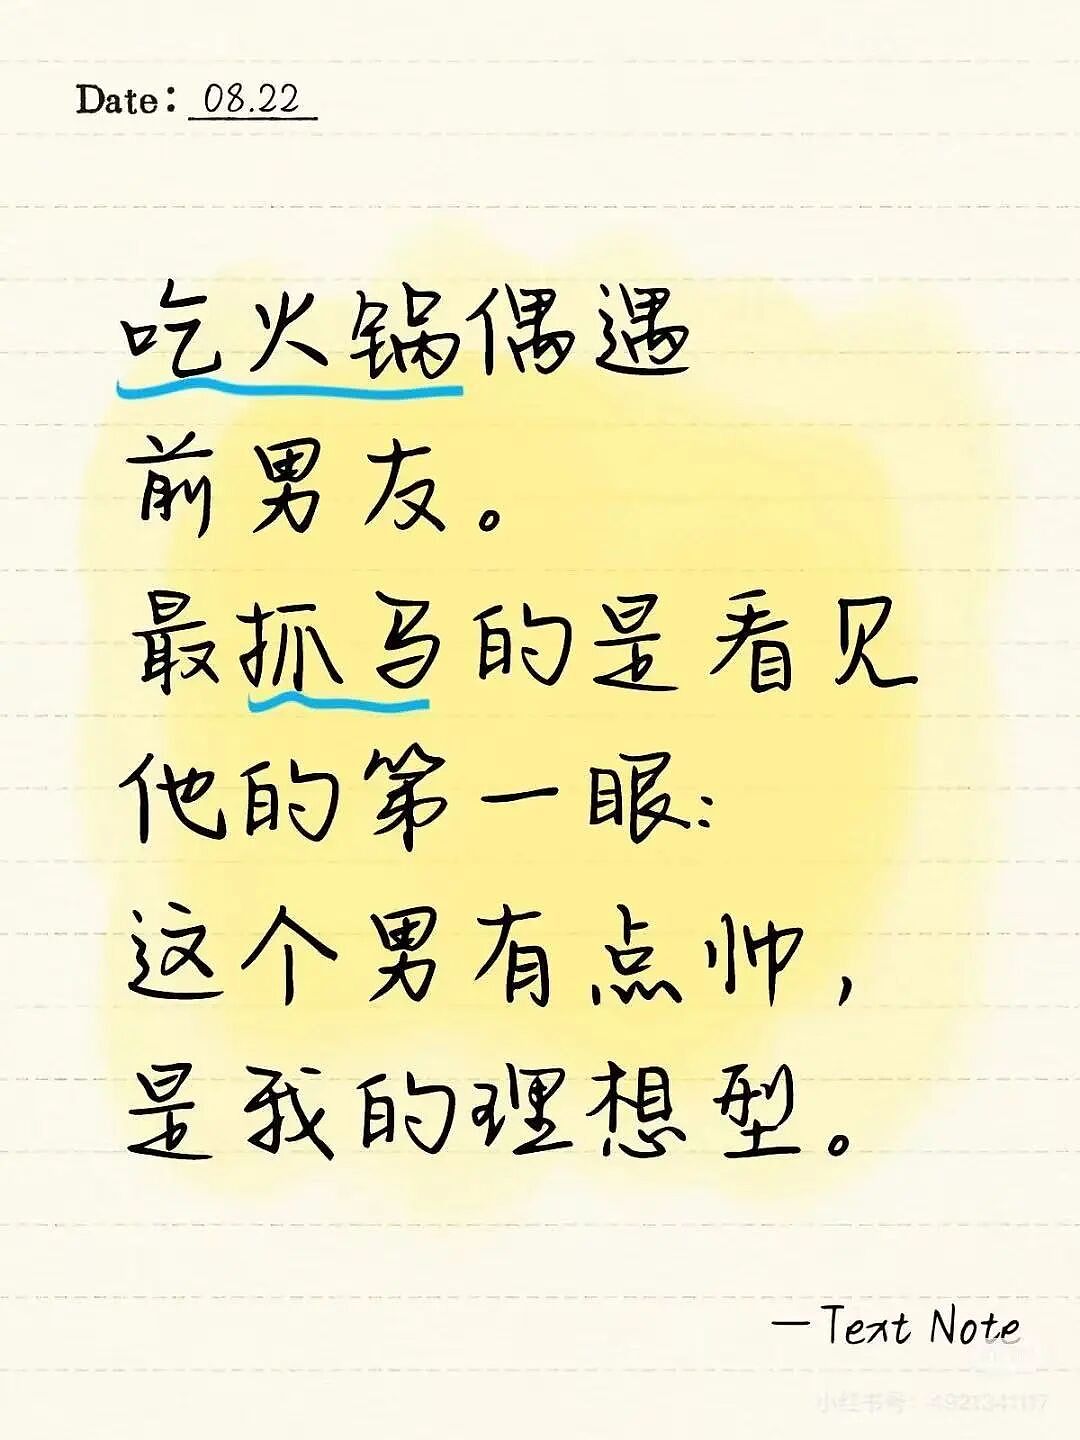 Date: 08.22
吃火锅偶遇
前男友。
最抓马的是看见
他的第一眼:
这个男有点帅,
是我的理想型。
—Text Note
小红书号: 4921341117